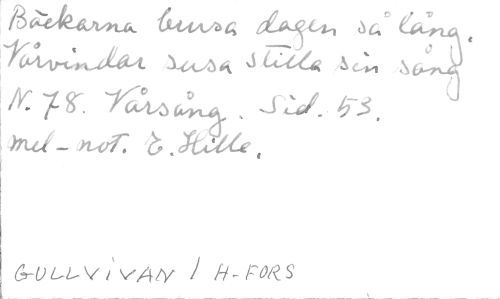 Bäckarna brusa dagen så lång.
Vårvindar susa stilla sin sång
N. 78. Vårsång. Sid. 53.
mel-not. E. Hille.
GULLVIVAN / H-FORS